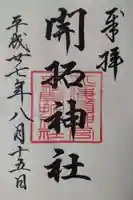 奉拝
開拓神社
平成廿七年八月十五日